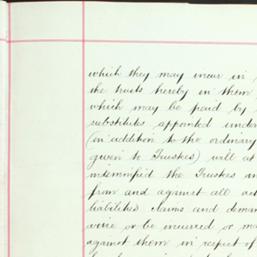 which they may incur in
the trusts hereby in them
which may be paid by
substitutes appointed under
(in addition to the ordinary
given to Trustees) will at
indemnified the Trustees
from and against all
liabilities claims and
were or be incurred or
against them in respect of